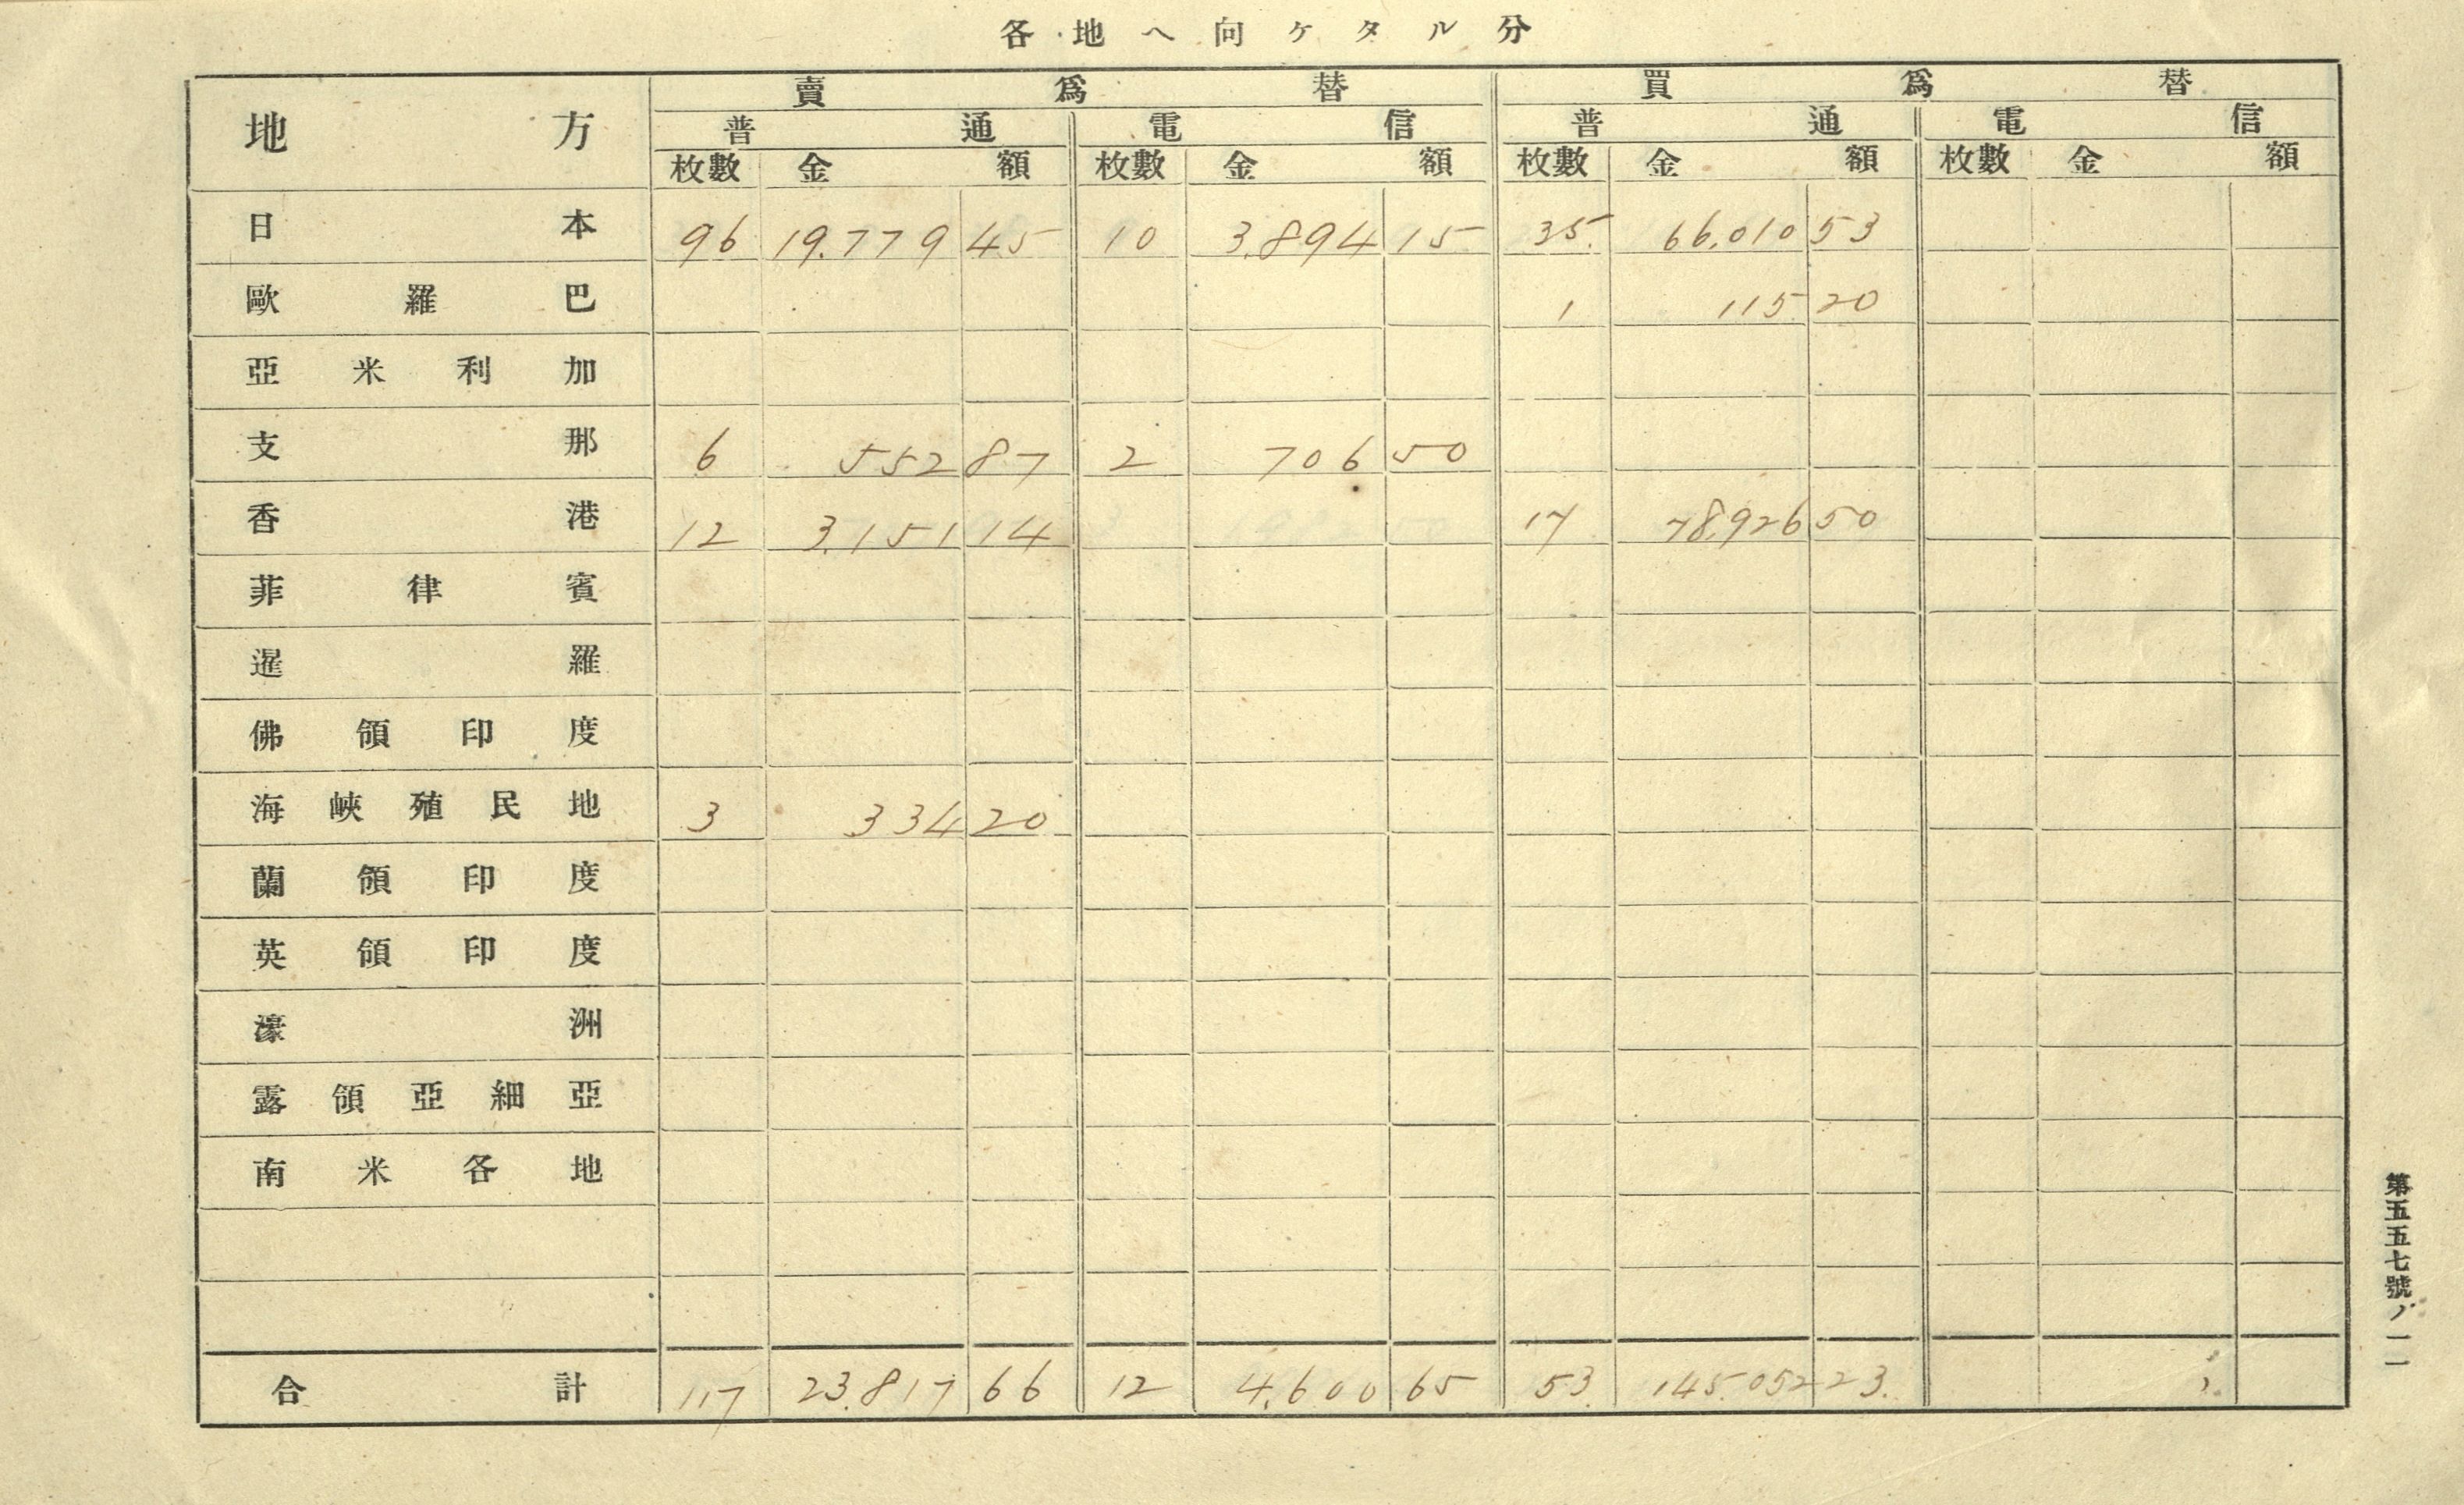 各地へ向ケタル分
地方 賣爲替 買爲替
普通 電信 普通 電信
枚數 金額 枚數 金額 枚數 金額 枚數 金額
日本 96 19.779 45 10 3.894 15 35. 66.010 53
歐羅巴 1 115 20
亞米利加
支那 6 552 87 2 706 50
香港 12 3.151 14 17 78.926 50
菲律賓
暹羅
佛領印度
海峽殖民地 3 334 20
蘭領印度
英領印度
濠洲
露領亞細亞
南米各地
合計 117 23.817 66 12 4.600 65 53. 145.052 23.
第五五七號ノ二